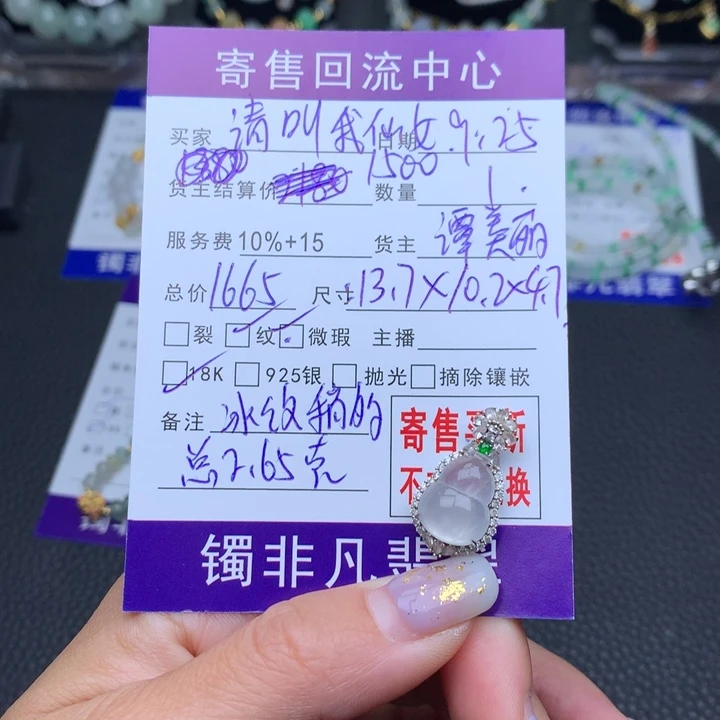 寄售回流中心
买家 请叫我仙女 日期 9.25
货主结算价 1500 数量 1.
服务费 10%+15 货主 谭美丽
总价 1665 尺寸 13.7×10.2×4.7
裂 纹 微瑕 主播
18K 925银 抛光 摘除镶嵌
备注 冰纹稍的
总2.65克
寄售买断
不 换
镯非凡翡翠
镯非